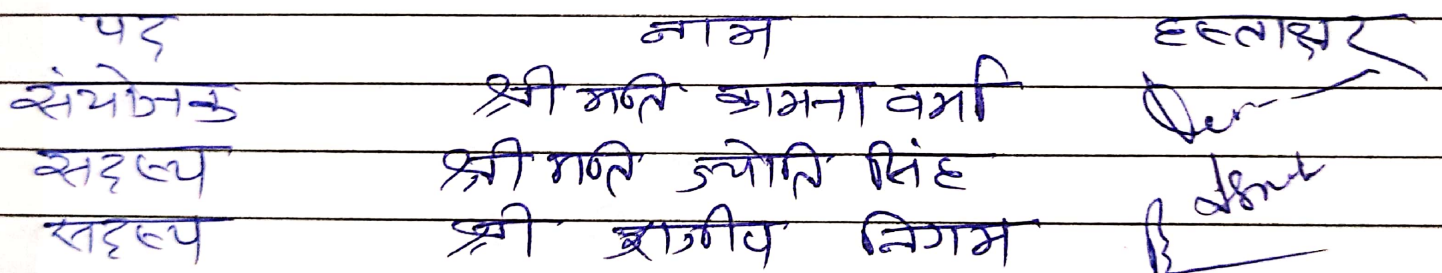 पद नाम हस्ताक्षर
संयोजक श्री मति कामना वर्मा
सदस्य श्री मति ज्योति सिंह
सदस्य श्री राजीव निगम